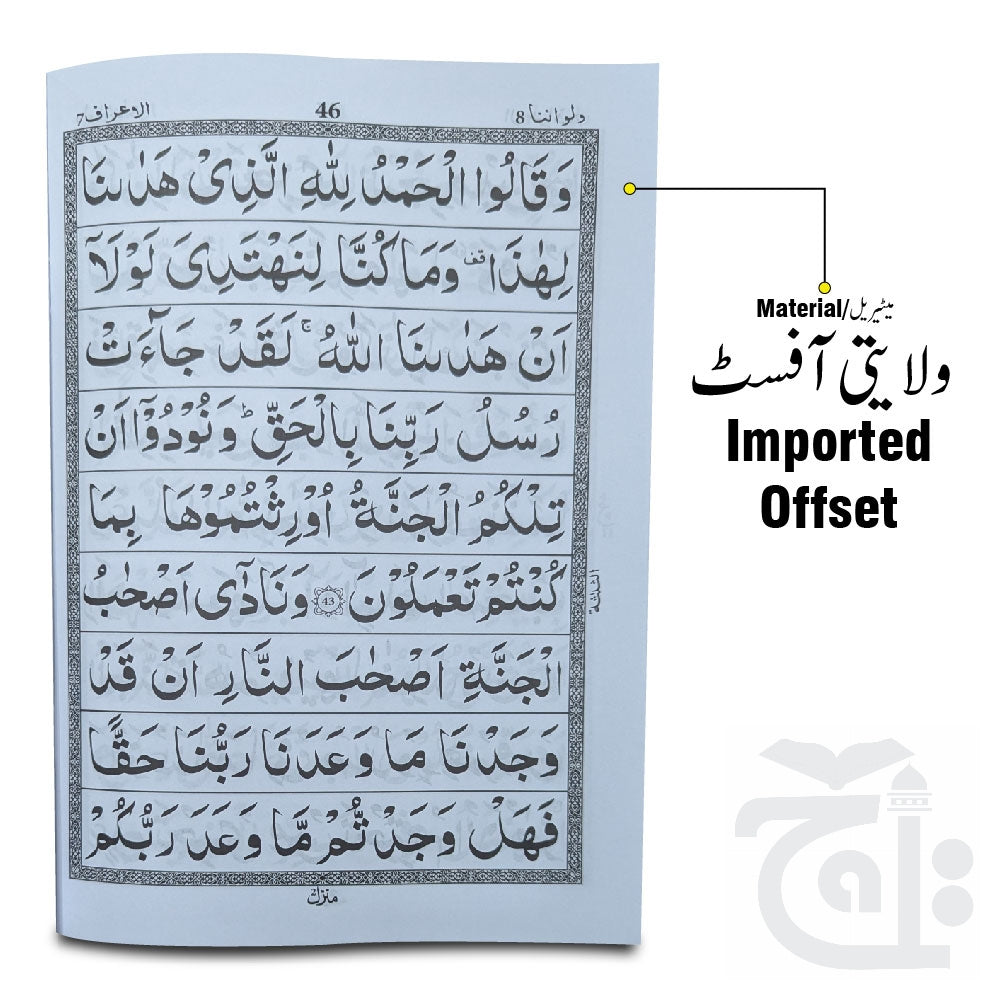 الاعراف 7
46
ولواننا 8
وَقَالُوا الْحَمْدُ لِلّٰهِ الَّذِىْ هَدٰىنَا
لِهٰذَا قف وَمَا كُنَّا لِنَهْتَدِىَ لَوْلَاۤ
اَنْ هَدٰىنَا اللّٰهُ ۚ لَقَدْ جَآءَتْ
رُسُلُ رَبِّنَا بِالْحَقِّ ؕ وَنُوْدُوْۤا اَنْ
تِلْكُمُ الْجَنَّةُ اُوْرِثْتُمُوْهَا بِمَا
كُنْتُمْ تَعْمَلُوْنَ 43 وَنَادٰۤى اَصْحٰبُ
الْجَنَّةِ اَصْحٰبَ النَّارِ اَنْ قَدْ
وَجَدْنَا مَا وَعَدَنَا رَبُّنَا حَقًّا
فَهَلْ وَجَدْتُّمْ مَّا وَعَدَ رَبُّكُمْ
منزل
الثلثة
Material/میٹیریل
ولایتی آفسٹ
Imported
Offset